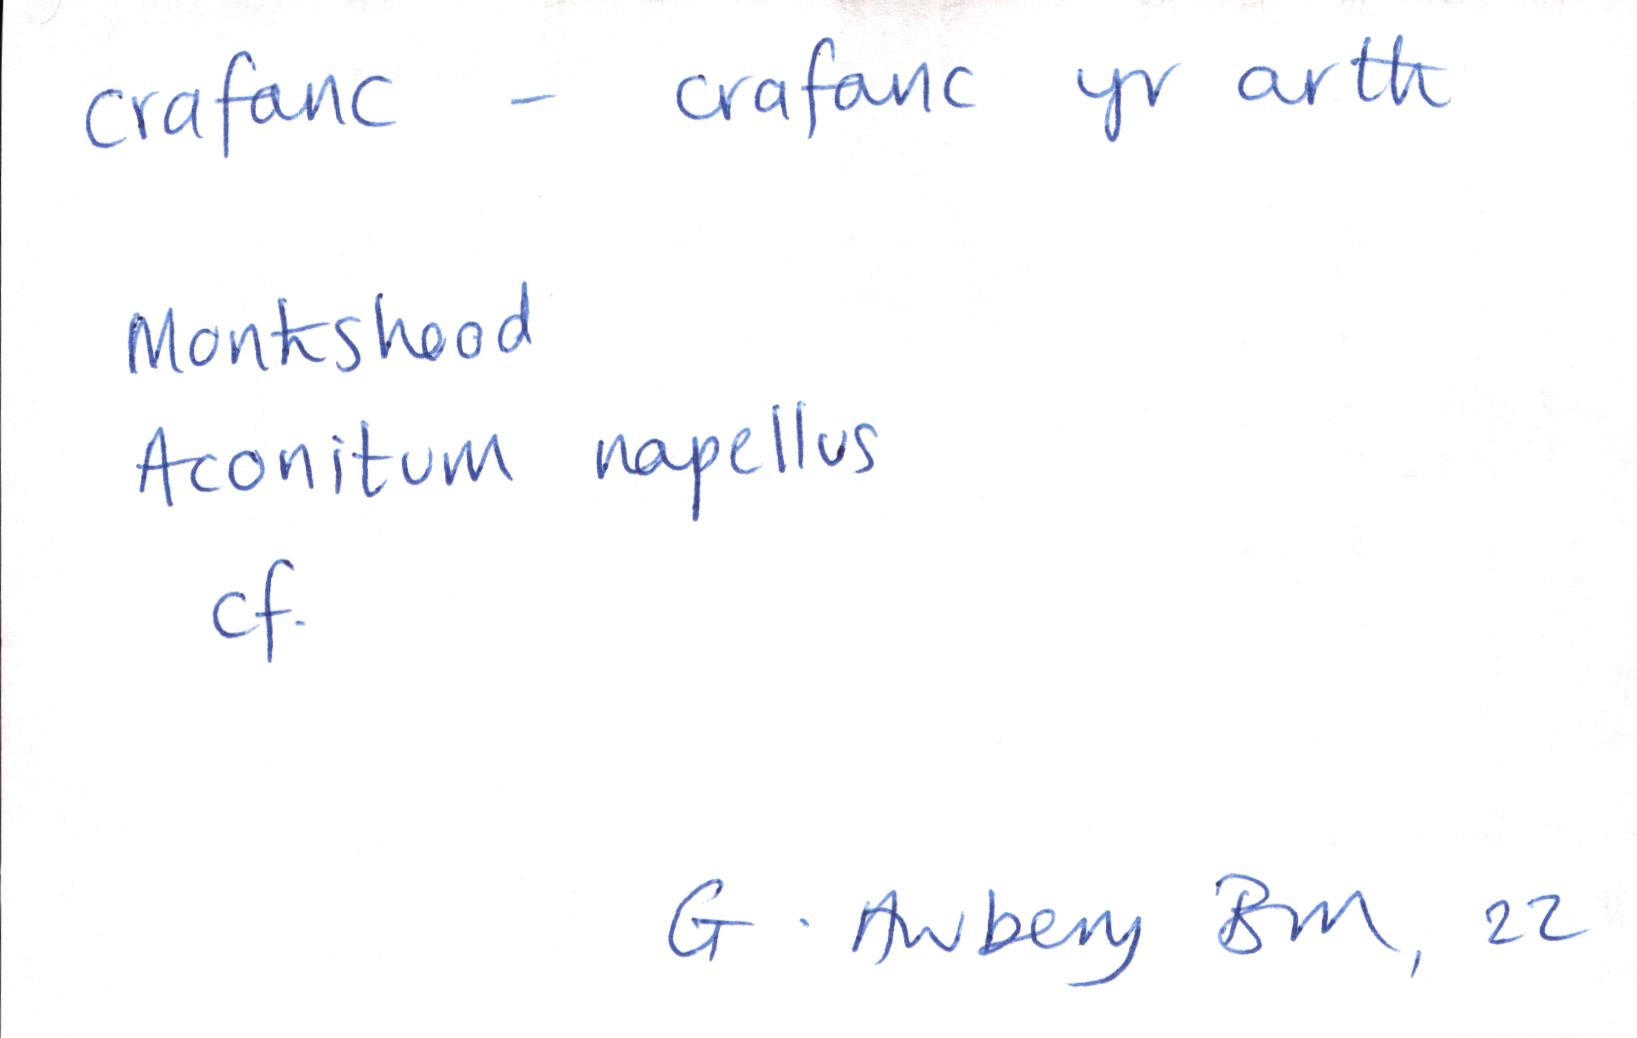 crafanc - crafanc yr arth
Monkshood
Aconitum napellus
cf.
G. Awbery BM, 22